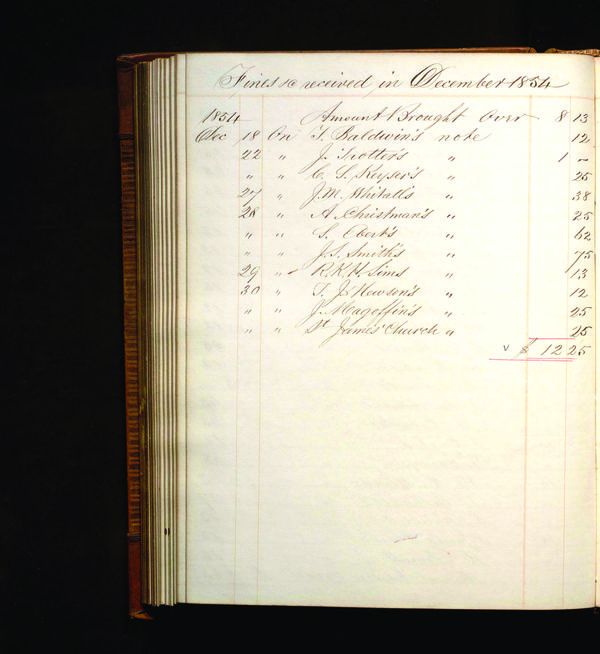 Fines &c received in December 1854
1854 Amount Brought Over 8 13
Dec 18 On T. Baldwin's note 12
22 " J. Trotter's " 1 –
" " C. S. Keyser's " 25
27 " J. M. Whitall's " 38
28 " A. Christman's " 25
" " S. Ebert's " 62
" " J. S. Smith's " 75
29 " R. K. H. Sims " 13
30 " T. J. Hewson's " 12
" " J. Magoffin's " 25
" " St James' Church " 25
v $ 12 25